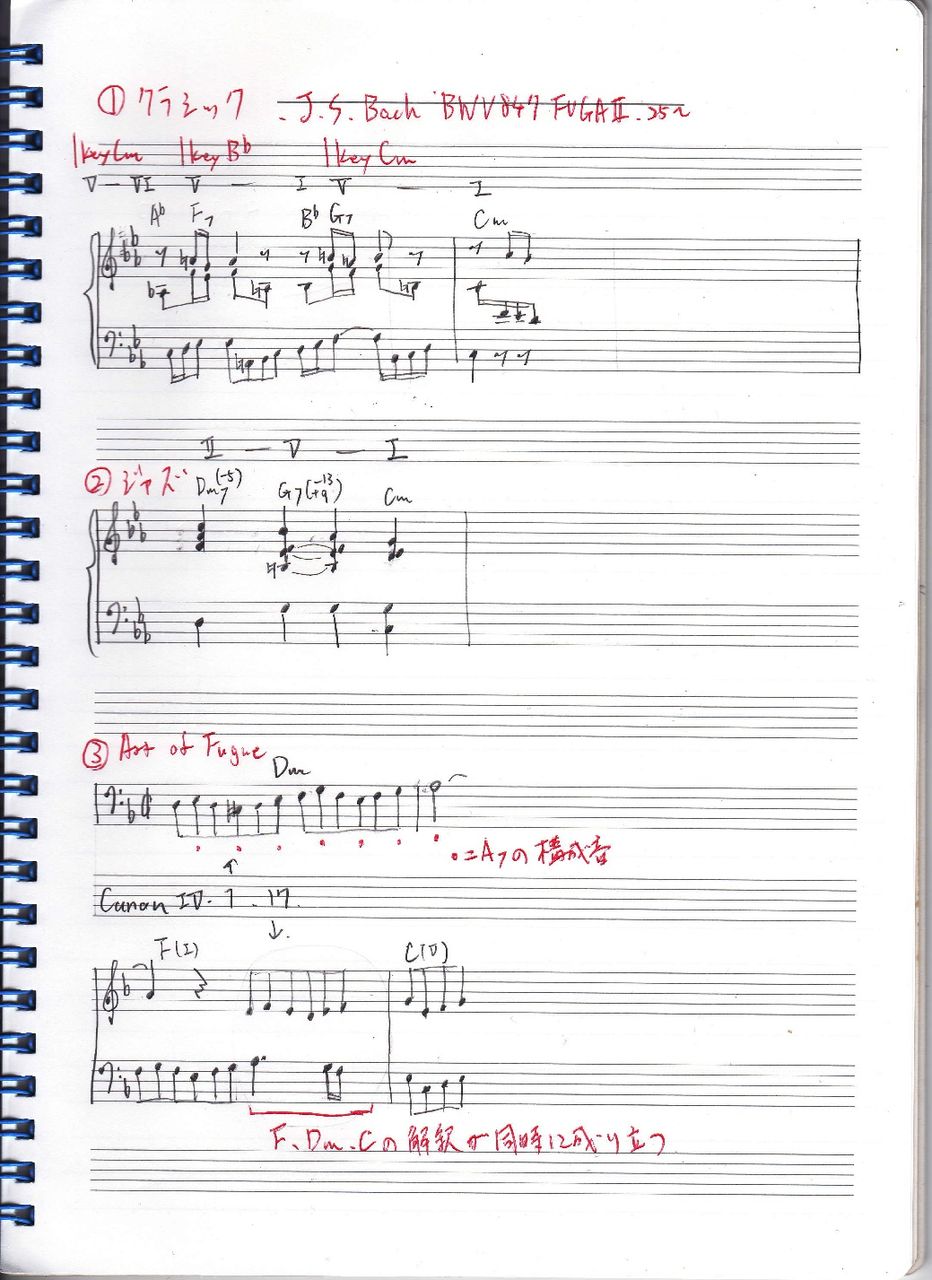 ① クラシック J.S.Bach BWV847 FUGAⅡ.25~
key Cm key B♭ key Cm
Ⅴ— Ⅵ Ⅴ — Ⅰ Ⅴ — Ⅰ
A♭ F7 B♭ G7 Cm
Ⅱ — Ⅴ — Ⅰ
② ジャズ Dm7(-5) G7(-13 +9) Cm
③ Art of Fugue
Dm
・=A7の構成音
Canon Ⅳ. 1 . 17.
F(Ⅰ) C(Ⅴ)
F、Dm、Cの解釈が同時に成り立つ